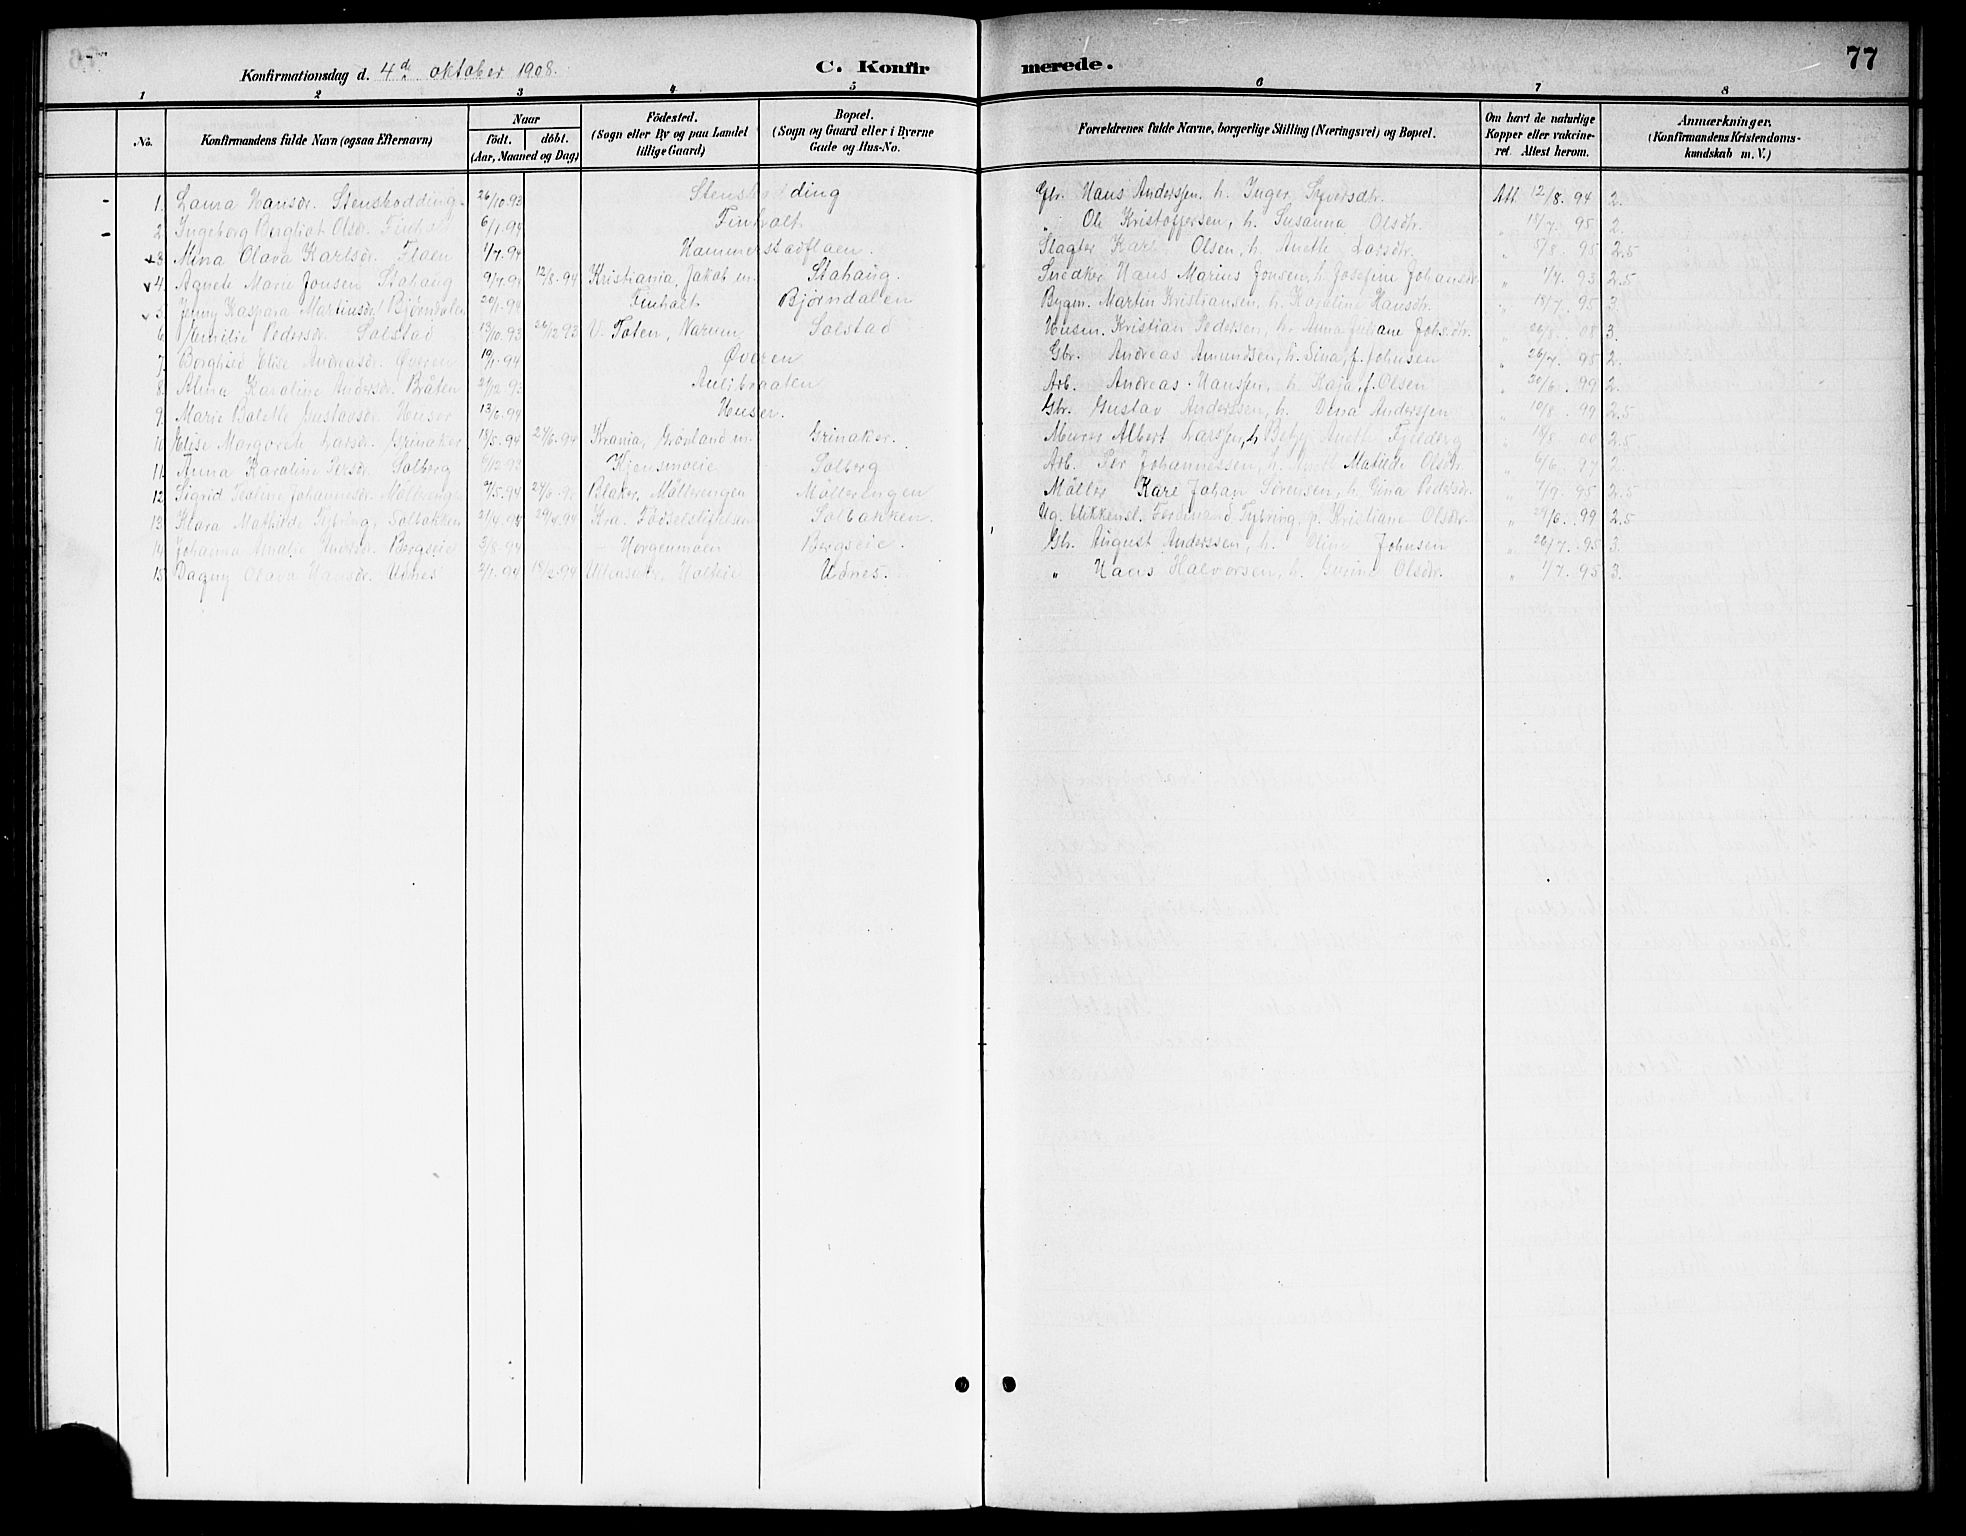 Konfirmationsdag d. 4de oktober 1908. C. Konfirmerede. 77
1 2 3 4 5 6 7 8
No. Konfirmandens fulde Navn (ogsaa Efternavn) Naar födt. döbt. (Aar, Maaned og Dag) Födested. (Sogn eller By og paa Landet tillige Gaard) Bopæl. (Sogn og Gaard eller i Byerne Gade og Hus-No. Forældrenes fulde Navne, borgerlige Stilling (Næringsvei) og Bopæl. Om havt de naturlige Kopper eller vakcineret. Attest herom. Anmærkninger. (Konfirmandens Kristendomskundskab m. V.)
1. Laura Hansdr. Stenskodding 26/10.93 Stenskodding Gbr. Hans Anderssen, h. Inger Syversdtr. Att. 12/8. 94 2.
2. Ingeborg Bergliot Olsdr. Finholt 6/1.94 Finholt " Ole Kristoffersen, h. Susanna Olsdtr. " 18/7. 95 2.
3. Mina Olava Karlsdr. Flaen 4/7.94 Hammerstadflaen. Slagter Karl Olsen, h. Anette Larsdtr. " 5/8. 95 2.5
4. Agnete Marie Jonsen Stahaug 9/7.94 12/8.94 Kristiania, Jakob m. Stahaug. Snedker Hans Marius Jonsen, h. Josefine Johansdr. " 1/7. 93 2.5
5. Jenny Kaspara Martinsdr. Björndalen 20/1.94 Finholt Björndalen Bygm. Martin Kristiansen, h. Karoline Hansdr. " 18/7. 95 3.
6. Emilie Pedersdr. Solstad 13/10.93 26/12.93 V. Toten, Narum Solstad Husm. Kristian Pedersen, h. Anna Juliane Johsdtr. " 26/8. 08 3.
7. Borghild Elise Andreasdr. Øveren 19/1.94 Øveren Gbr. Andreas Amundsen, h. Sina, f. Johnsen " 26/7. 95 2.
8. Anna Karoline Andersdr. Bråten 21/12.93 Aulibraaten Arb. Andreas Hanssen, h. Kaja, f. Olsen " 30/6. 99 2.
9. Marie Bolette Gustavsdr. Huser 13/6.94 Huser. Gbr. Gustav Anderssen, h. Dina Anderssen " 10/8. 99 2.5
10. Elise Margrete Larsdr. Grinaker 18/5.94 24/6.94 Krania, Grønland m. Grinaker. Murer Albert Larssen, h. Betzy Anette Fjeldberg " 18/8 00 2.5
11. Anna Karoline Persdr. Solberg 6/12.93 Kjensmoeie Solberg Arb. Per Johannessen, h. Matilde Olsdtr " 6/6. 97 2.
12. Sigrid Johannesdr. Möllerengen 7/5.94 Blaker, Möllerengen Möllerengen Möller Karl Johan Sörensen, h. Gina Pedersdr. " 7/9. 95 2.5
13. Klara Mathilde Tybring, Solbakken 21/4.94 29/4.94 Kra. Fødselsstiftelsen Solbakken. Ug. blikkensl. Ferdinand Tybring, p. Kristiane Olsdtr. " 24/6. 99 2.5
14. Johanna Amalie Andersdr. Bergseie 3/8.94 Horgenmoen Bergseie. Gbr. August Anderssen, h. Oline Johnsen " 26/7. 95 3.
15. Dagny Olava Hansdr. Udnes 2/1.94 Ullensaker, Holteie Udnes. " Hans Halvorsen, h. Gurine Olsdtr. " 1/7. 95 3.